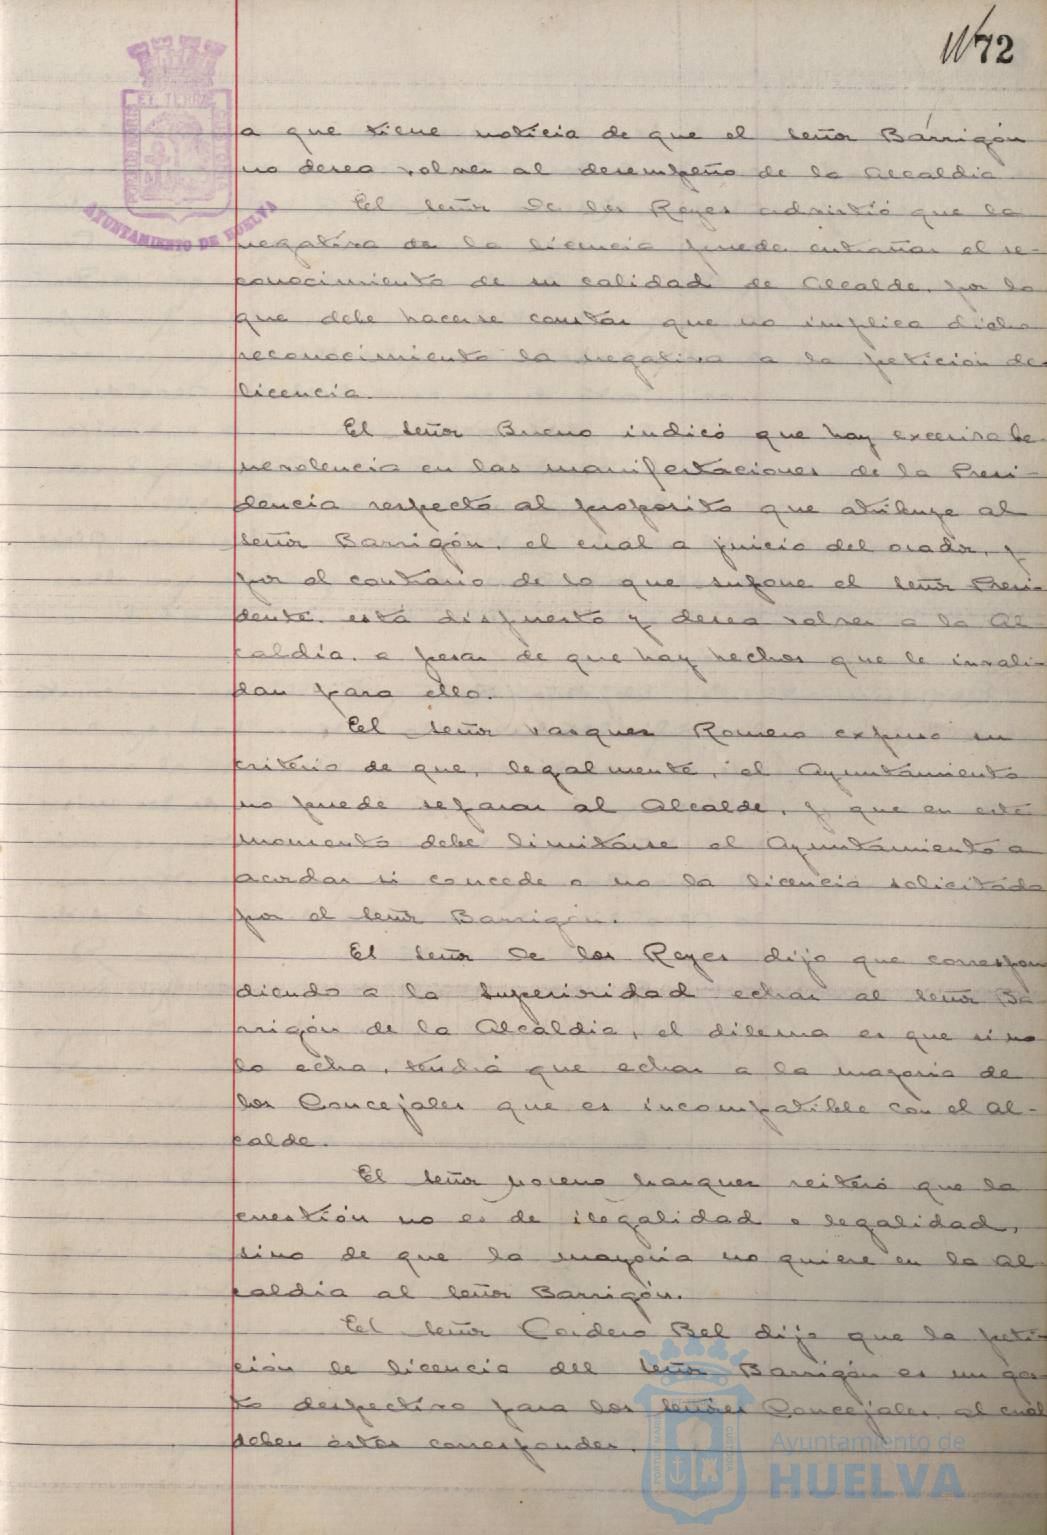 72
EL TERRÆ
AYUNTAMIENTO DE HUELVA
a que tiene noticia de que el señor Barrigón
no desea volver al desempeño de la Alcaldia
El señor de los Reyes advirtió que la
negativa de la licencia puede entrañar el re-
conocimiento de su calidad de Alcalde, por lo
que debe hacerse constar que no implica dicho
reconocimiento la negativa a la petición de
licencia.
El señor Bueno indicó que hay excesiva be-
nevolencia en las manifestaciones de la Presi-
dencia respecto al proposito que atribuye al
señor Barrigón, el cual a juicio del orador, y
por el contrario de lo que supone el señor Presi-
dente, está dispuesto y desea volver a la Al-
caldia, a pesar de que hay hechos que le invali-
dan para ello.
El señor Vasquez Romero expuso su
criterio de que, legalmente, el Ayuntamiento
no puede separar al Alcalde, y que en este
momento debe limitarse el Ayuntamiento a
acordar si concede o no la licencia solicitada
por el señor Barrigón.
El señor de los Reyes dijo que correspon
diendo a la Superioridad echar al señor Ba
rrigón de la Alcaldia, el dilema es que si no
lo echa, tendrá que echar a la mayoria de
los Concejales que es incompatible con el Al-
calde.
El señor Moreno Marquez reiteró que la
cuestión no es de ilegalidad o legalidad,
sino de que la mayoria no quiere en la Al-
caldia al señor Barrigón.
El señor Cordero Bel dijo que la peti-
ción de licencia del señor Barrigón es un ges-
to despectivo para los señores Concejales, al cual
deben éstos corresponder.
Ayuntamiento de
HUELVA